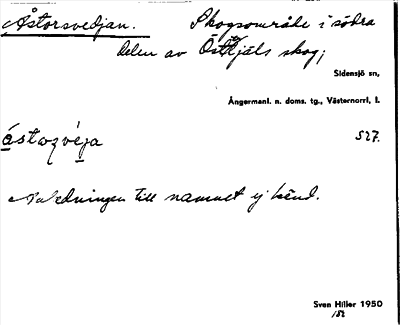 Åstorsvedjan. Skogsområde i södra
delen av Östtjäls skog;
Sidensjö sn,
Ångermanl. n. doms. tg., Västernorrl, l.
527.
Anledningen till namnet ej känd.
Sven Hiller 1950
182